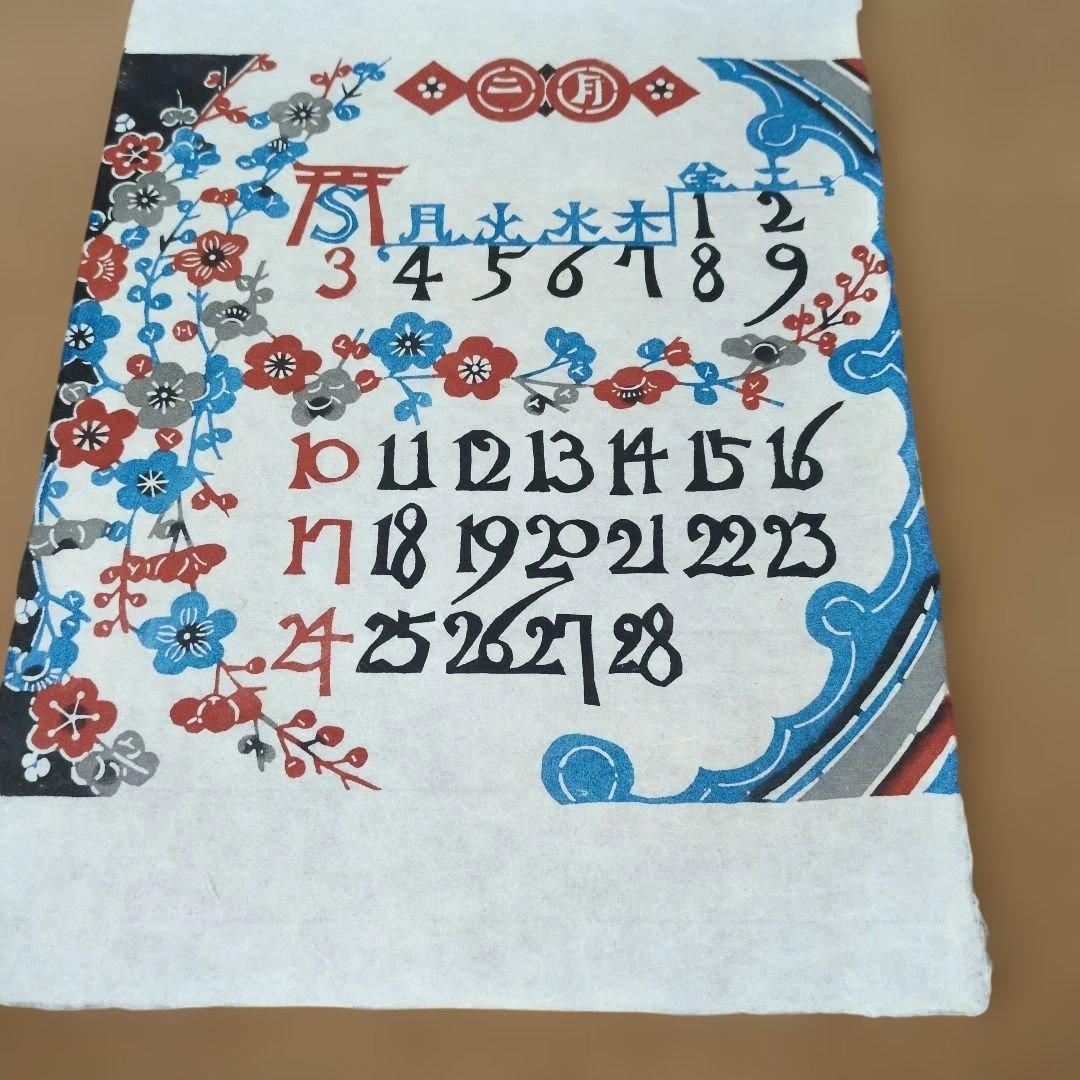 二月
金 土
S 月 火 水 木 1 2
3 4 5 6 7 8 9
10 11 12 13 14 15 16
17 18 19 20 21 22 23
24 25 26 27 28